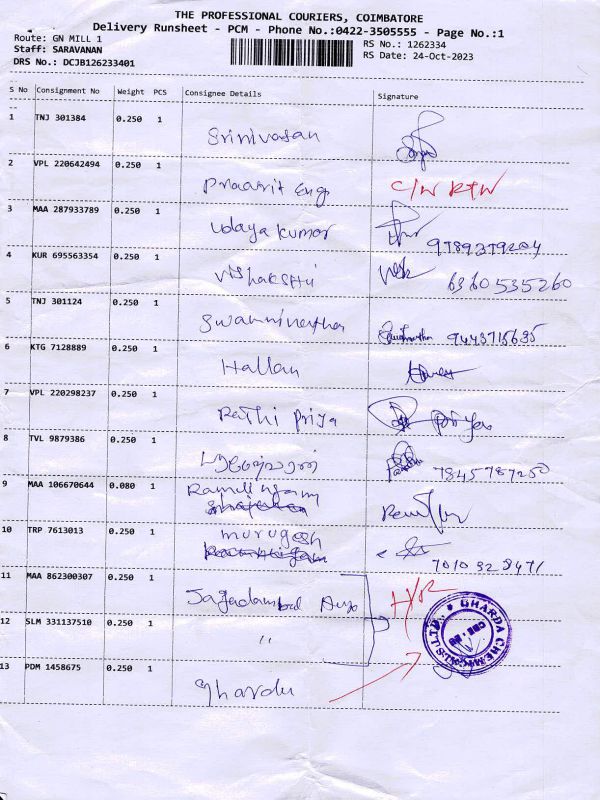 THE PROFESSIONAL COURIERS, COIMBATORE
Delivery Runsheet - PCM - Phone No.:0422-3505555 - Page No.:1
Route: GN MILL 1
RS No.: 1262334
Staff: SARAVANAN
RS Date: 24-Oct-2023
DRS No.: DCJB126233401
S No Consignment No Weight PCS Consignee Details Signature
1 TNJ 301384 0.250 1 Srinivasan
2 VPL 220642494 0.250 1 Praavit Eng
3 MAA 287933789 0.250 1 Udaya Kumar
4 KUR 695563354 0.250 1 6360535260
5 TNJ 301124 0.250 1
6 KTG 7128889 0.250 1 Hallan
7 VPL 220298237 0.250 1 Rathi Priya Priya
8 TVL 9879386 0.250 1 7845787250
9 MAA 106670644 0.080 1
10 TRP 7613013 0.250 1 murugesh
11 MAA 862300307 0.250 1
12 SLM 331137510 0.250 1 "
13 PDM 1458675 0.250 1